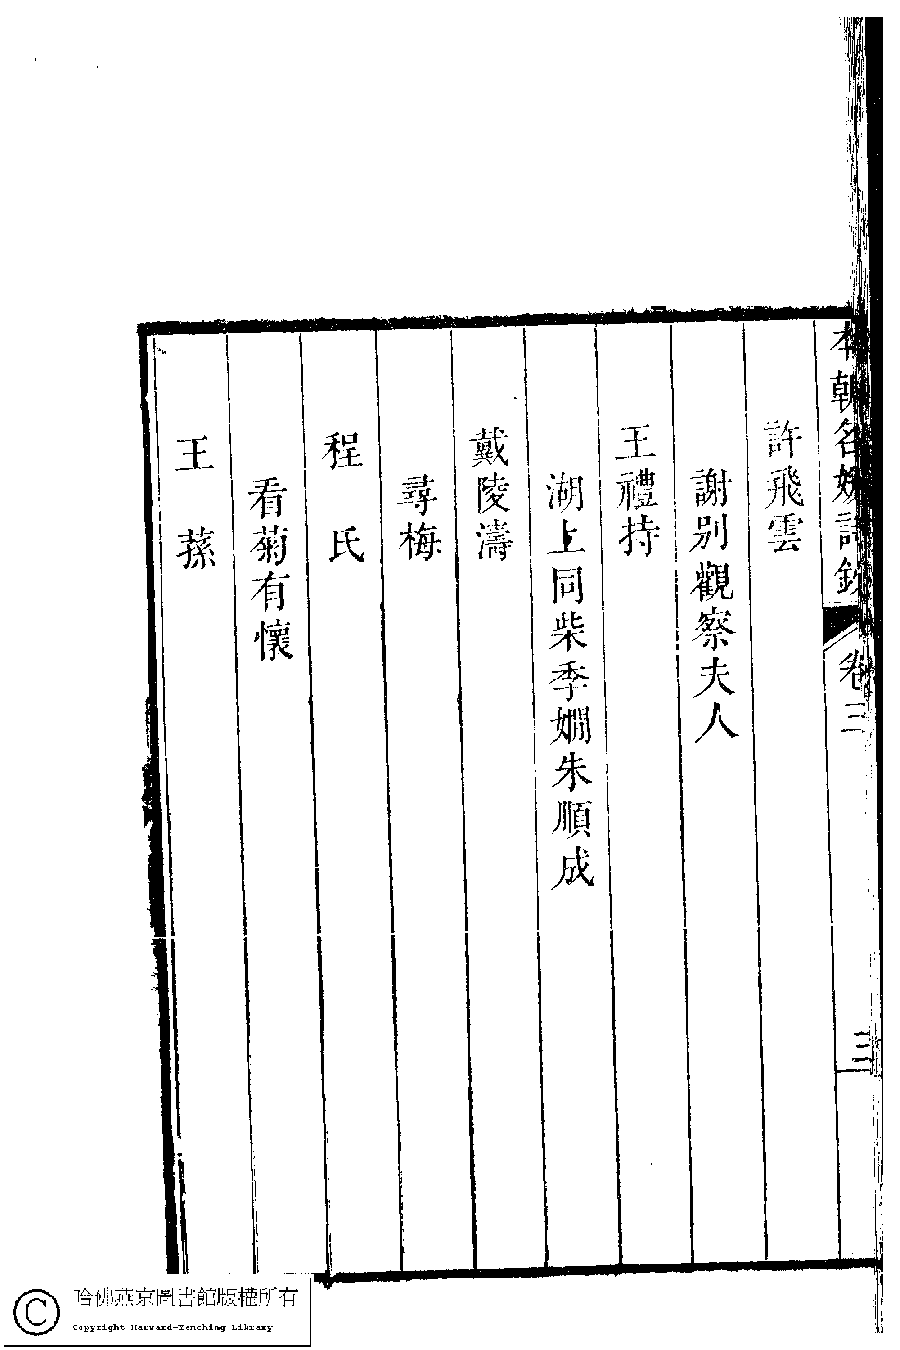 本朝名媛詩鈔 卷三 三
許飛雲
謝別觀察夫人
王禮持
湖上同柴季嫺朱順成
戴陵濤
尋梅
程 氏
看菊有懷
王 蓀
哈佛燕京圖書館版權所有
Copyright Harvard-Yenching Library